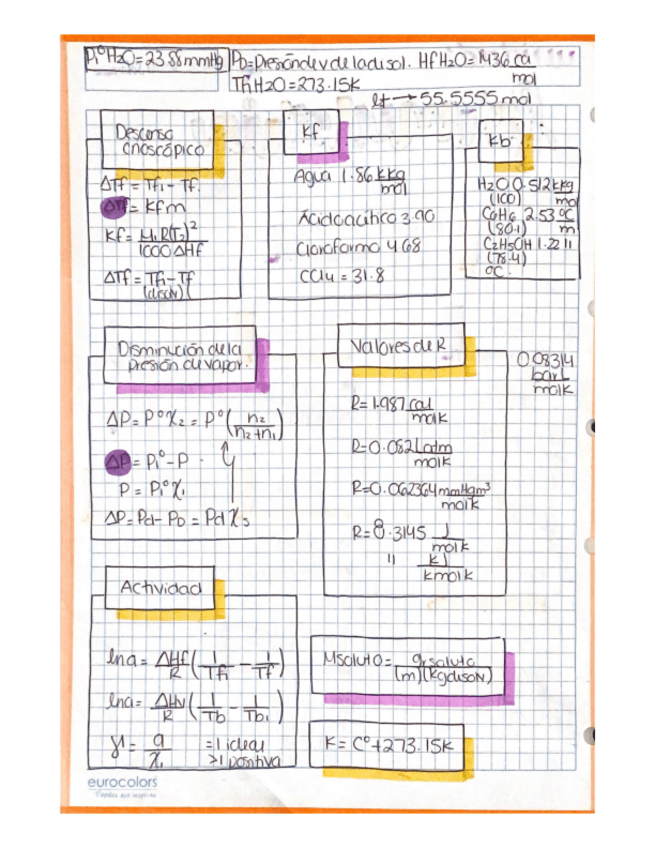 P₁°H₂O=23.58mmHg
Pb=Presión de v de la disol. HfH₂O=1436 cal/mol
Tf₁H₂O=273.15K
1lt → 55.5555 mol
Descenso crioscópico
ΔTf = Tf₁ - Tf.
ΔTf = Kfm
Kf = M₁R(Tf₁)²/1000ΔHf
ΔTf = Tf₁ - Tf
(disolv) (
Kf
Agua 1.86 kkg/mol
Ácido acético 3.90
Cloroformo 4.68
CCl₄ = 31.8
Kb
H₂O 0.512 kkg/mol
(100)
C₆H₆ 2.53 °C/m
(80.1)
C₂H₅OH 1.22 11
(78.4)
°C.
Disminución de la
presión de vapor.
ΔP = P°X₂ = P°(n₂/n₂+n₁)
ΔP = P₁° - P
P = P₁°X₁
ΔP = Pd - Pb = Pd Xs
Valores de R
R=1.987 cal/molk
R=0.082 Latm/molk
R=0.062364 mmHgm³/molk
R=8.3145 J/molk
11 kJ/kmolk
0.08314
barL
molk
Actividad
lna = ΔHf/R (1/Tf₁ - 1/Tf)
lna = ΔHv/R (1/Tb - 1/Tb₁)
γ₁ = a/X₁ =1 ideal
>1 positiva
Msoluto = gr soluto/(m)(kgdisolv)
K = C°+273.15K
eurocolors